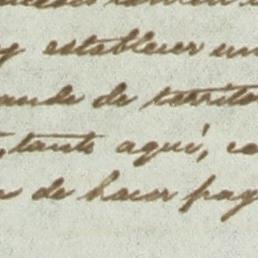 y establecer un
ande de territo
, tanto aquí, co
de hacer pag